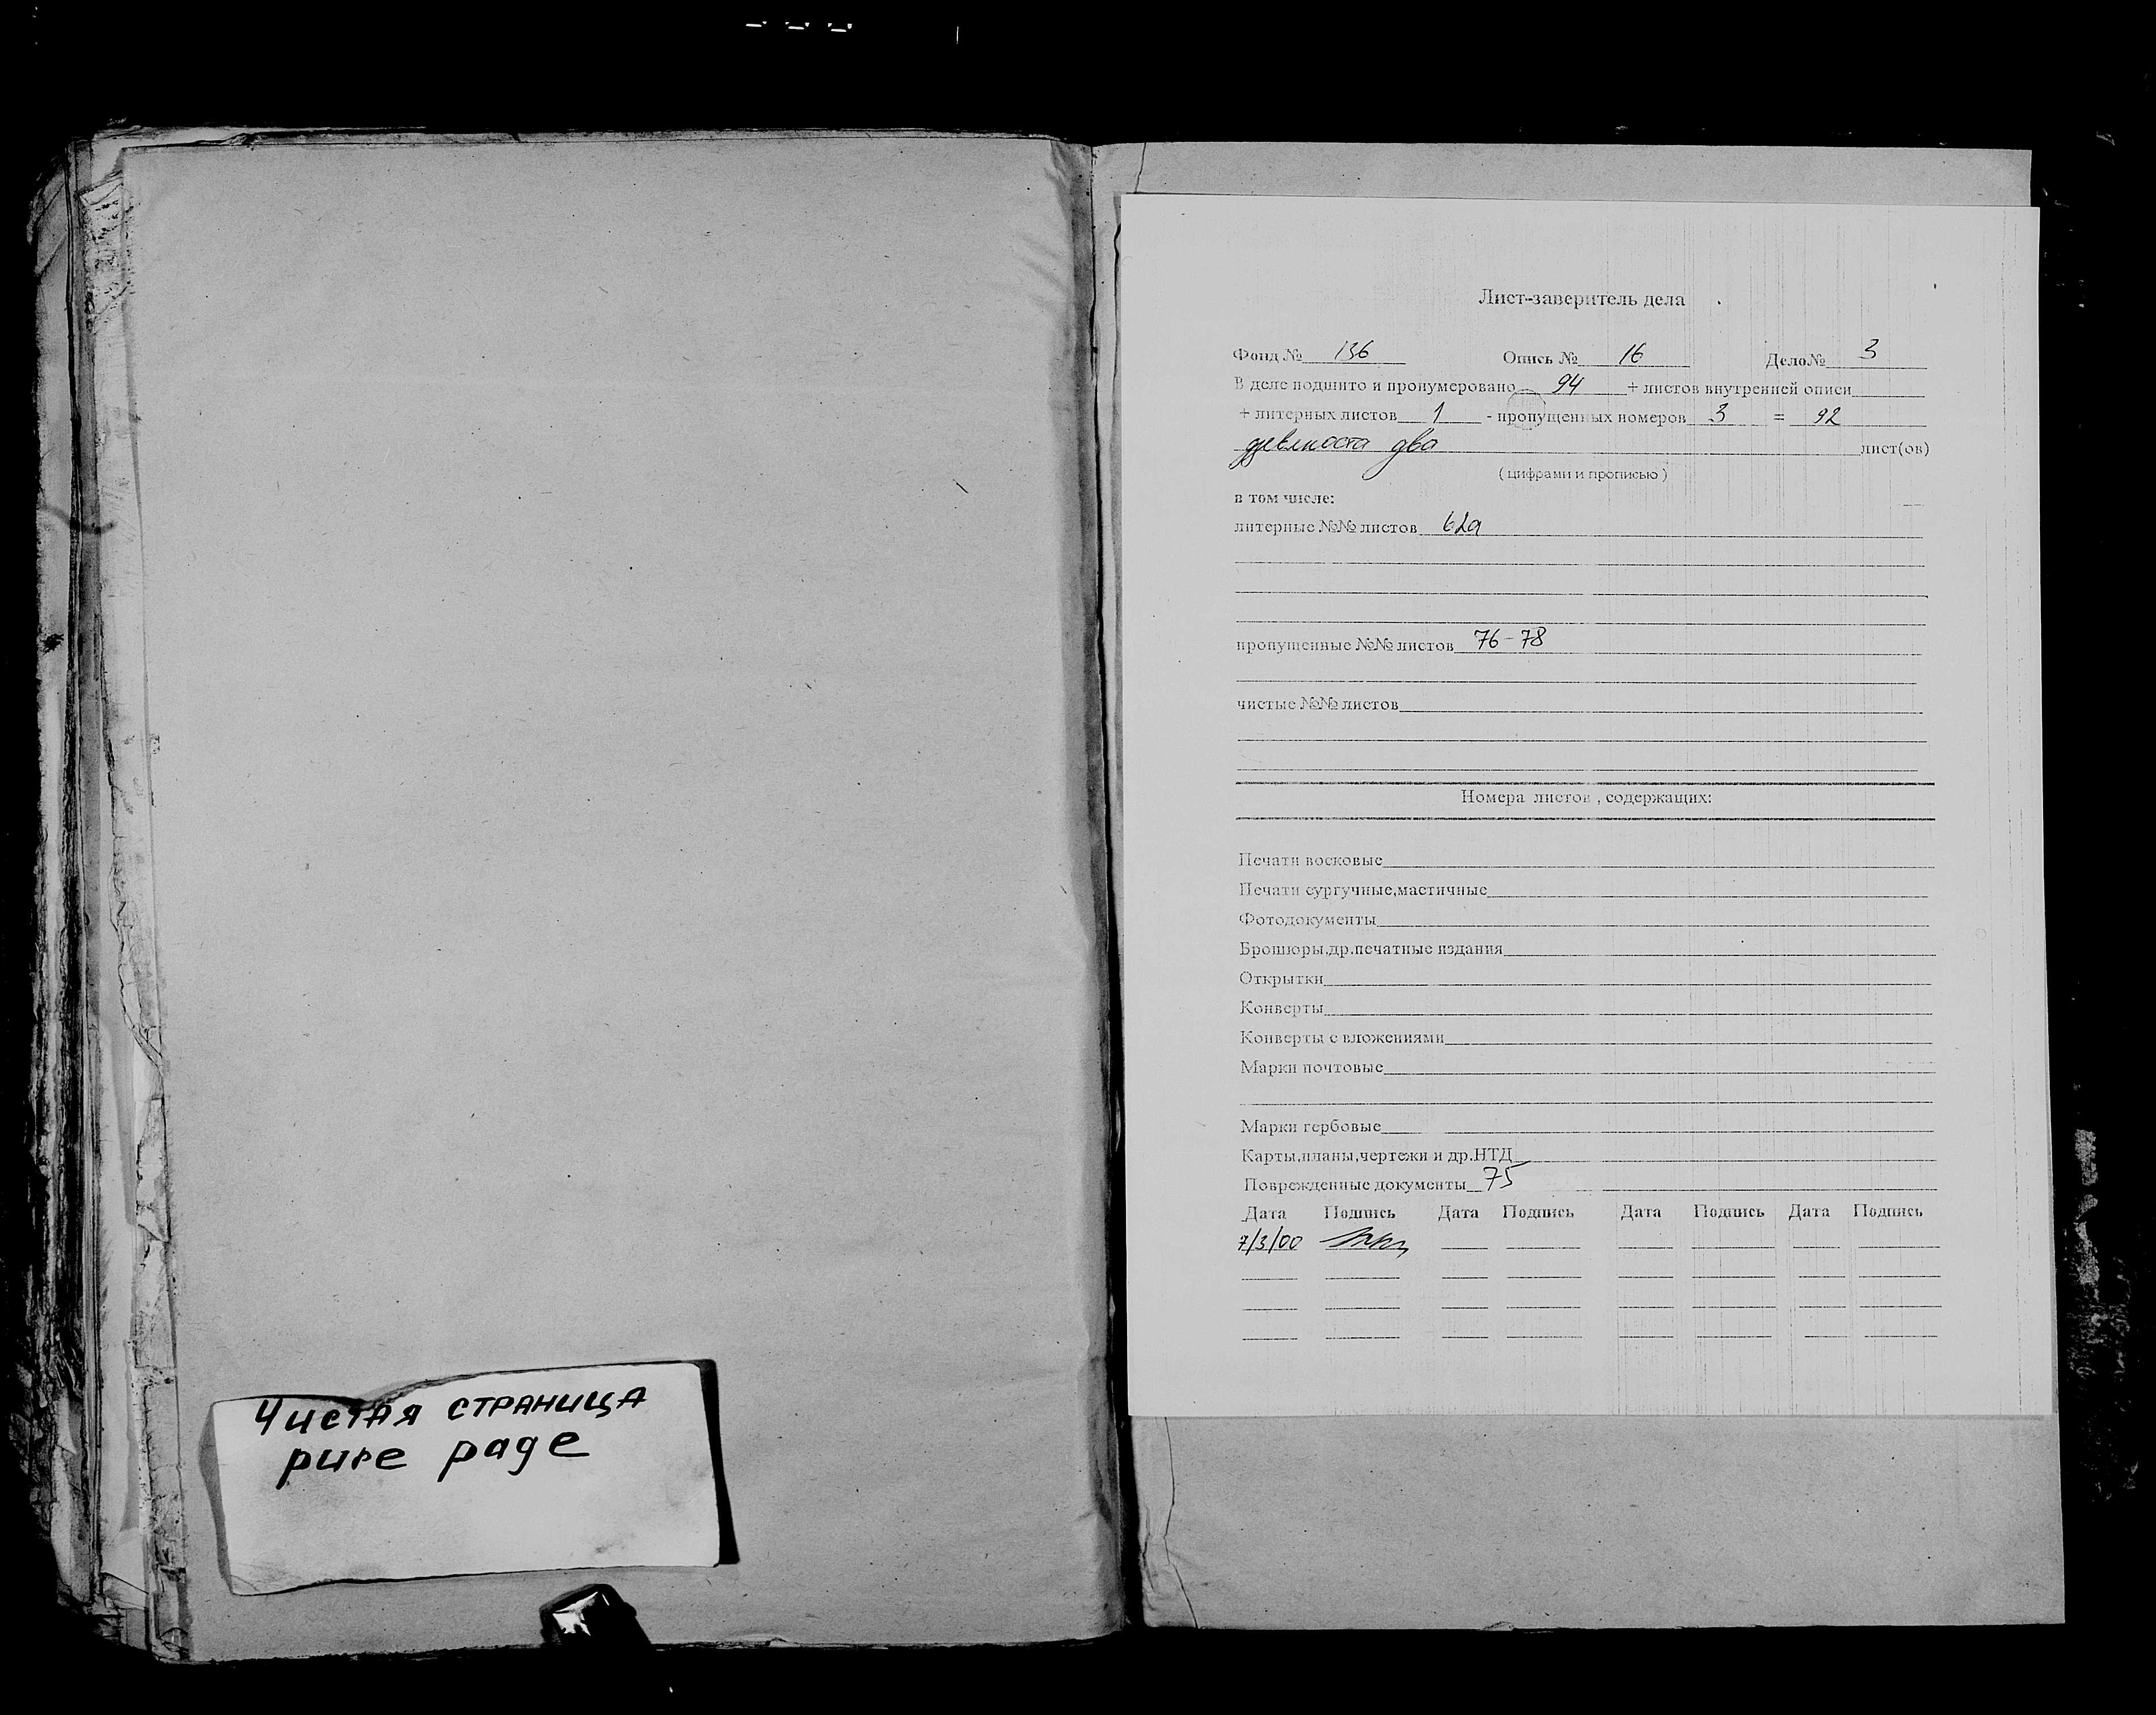 Чистая страница
pure page
Лист-заверитель дела
Фонд № 136 Опись № 16 Дело№ 3
В деле подшито и пронумеровано 94 + листов внутренней описи
+ литерных листов 1 - пропущенных номеров 3 = 92
девяноста два лист(ов)
( цифрами и прописью )
в том числе:
литерные №№ листов 62а
пропущенные №№ листов 76-78
чистые №№ листов
Номера листов , содержащих:
Печати восковые
Печати сургучные,мастичные
Фотодокументы
Брошюры,др.печатные издания
Открытки
Конверты
Конверты с вложениями
Марки почтовые
Марки гербовые
Карты,планы,чертежи и др.НТД
Поврежденные документы 75
Дата Подпись Дата Подпись Дата Подпись Дата Подпись
7/3/00